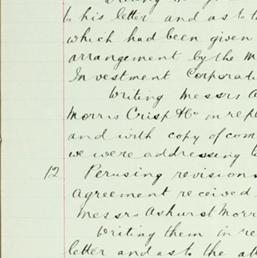 to his letter and as to t
which had been given
arrangement by the M
Investment Corporati
Writing Messrs A
Morris Crisp &Co in rep
and with copy of com
we were addressing t
12 Perusing revision
agreement received
Messrs Ashurst Morr
Writing them in re
letter and as to the at